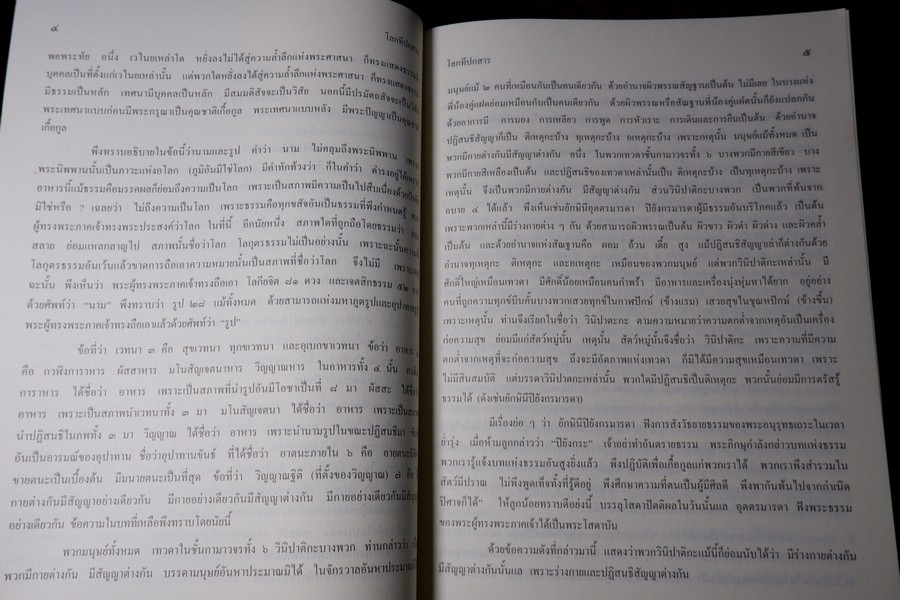 ๔
โลกทีปกสาร
พอพระทัย อนึ่ง เวไนยเหล่าใด หยั่งลงไม่ได้สู่ความล้ำลึกแห่งพระศาสนา ก็ทรงแสดงธรรม
บุคคลเป็นที่ตั้งแก่เวไนยเหล่านั้น แต่พวกใดหยั่งลงได้สู่ความล้ำลึกแห่งพระศาสนา ก็ทรงแสดง
มีธรรมเป็นหลัก เทศนามีบุคคลเป็นหลัก มีสมมติสัจเป็นวิสัย นอกนี้มีปรมัตถสัจจะเป็น
พระเทศนาแบบก่อนมีพระกรุณาเป็นคุณชาติเกื้อกูล พระเทศนาแบบหลัง มีพระปัญญาเป็นคุณชาติ
เกื้อกูล
พึงทราบอธิบายในข้อนี้ว่านามและรูป คำว่า นาม ไม่คลุมถึงพระนิพพาน เพราะ
พระนิพพานนั้นเป็นภาวะแห่งอโลก (ภูมิอันมิใช่โลก) มีคำทักท้วงว่า ก็ในคำว่า ดำรงอยู่ได้เพราะ
อาหารนี้แม้ธรรมคือมรรคผลก็ย่อมถึงความเป็นโลก เพราะเป็นสภาพมีความเป็นไปสืบเนื่องด้วยปัจจัย
มิใช่หรือ ? เฉลยว่า ไม่ถึงความเป็นโลก เพราะธรรมคือทุกขสัจอันเป็นธรรมที่พึงกำหนดรู้
ผู้ทรงพระภาคเจ้าทรงพระประสงค์ว่าโลก ในที่นี้ อีกนัยหนึ่ง สภาพใดที่ถูกถือโดยธรรมว่า
สลาย ย่อมแหลกลาญไป สภาพนั้นชื่อว่าโลก โลกุตรธรรมไม่เป็นอย่างนั้น เพราะฉะนั้น
โลกุตรธรรมอันเว้นแล้วขาดการถือเอาความหมายนั้นเป็นสภาพที่ชื่อว่าโลก จึงไม่มี
ฉะนั้น พึงเห็นว่า พระผู้ทรงพระภาคเจ้าทรงถือเอา โลกียจิต ๘๑ ดวง และเจตสิกธรรม ๕๒
ด้วยศัพท์ว่า “นาม” พึงทราบว่า รูป ๒๘ แม้ทั้งหมด ด้วยสามารถแห่งมหาภูตรูปและอุปาทายรูป
พระผู้ทรงพระภาคเจ้าทรงถือเอาแล้วด้วยศัพท์ว่า “รูป”
ข้อที่ว่า เวทนา ๓ คือ สุขเวทนา ทุกขเวทนา และอุเบกขาเวทนา ข้อว่า อาหาร ๔
คือ กวฬิงการาหาร ผัสสาหาร มโนสัญเจตนาหาร วิญญาณหาร ในอาหารทั้ง ๔ นั้น
การาหาร ได้ชื่อว่า อาหาร เพราะเป็นที่นำรูปอันมีโอชาเป็นที่ ๘ มา ผัสสะ ได้ชื่อว่า
อาหาร เพราะเป็นสภาพนำเวทนาทั้ง ๓ มา มโนสัญเจตนา ได้ชื่อว่า อาหาร เพราะเป็น
นำปฏิสนธิในภพทั้ง ๓ มา วิญญาณ ได้ชื่อว่า อาหาร เพราะนำนามรูปในขณะปฏิสนธิมา
อันเป็นอารมณ์ของอุปาทาน ชื่อว่าอุปาทานขันธ์ ที่ได้ชื่อว่า อายตนะภายใน ๖ คือ
ขายตนะเป็นเบื้องต้น มีมนายตนะเป็นที่สุด ข้อที่ว่า วิญญาณฐิติ (ที่ตั้งของวิญญาณ) ๗ คือ
กายต่างกันมีสัญญาอย่างเดียวกัน มีกายอย่างเดียวกันมีสัญญาต่างกัน มีกายอย่างเดียวกันมีสัญญา
อย่างเดียวกัน ข้อความในบทที่เหลือพึงทราบโดยนัยนี้
พวกมนุษย์ทั้งหมด เทวดาในชั้นกามาวจรทั้ง ๖ วินิปาติกะบางพวก ท่านกล่าวว่า
พวกมีกายต่างกัน มีสัญญาต่างกัน บรรดามนุษย์อันหาประมาณมิได้ ในจักรวาลอันหาประมาณมิได้
โลกทีปกสาร
๕
มนุษย์แม้ ๒ คนที่เหมือนกันเป็นคนเดียวกัน ด้วยอำนาจผิวพรรณสัญฐานเป็นต้น ไม่มีเลย ในบางแห่ง
พี่น้องคู่แฝดย่อมเหมือนกันเป็นคนเดียวกัน ด้วยผิวพรรณหรือสัณฐานพี่น้องคู่แฝดนั้นก็ยังแปลกกัน
ด้วยอาการมี การมอง การเหลียว การพูด การหัวเราะ การเดินและการยืนเป็นต้น ด้วยอำนาจ
ปฏิสนธิสัญญาก็เป็น ติเหตุกะบ้าง ทุเหตุกะบ้าง อเหตุกะบ้าง เพราะเหตุนั้น มนุษย์แม้ทั้งหมด เป็น
พวกมีกายต่างกันมีสัญญาต่างกัน อนึ่ง ในพวกเทวดาชั้นกามาวจรทั้ง ๖ บางพวกมีกายสีเขียว บาง
พวกมีกายสีเหลืองเป็นต้น และปฏิสนธิของเทวดาเหล่านั้น เป็นติเหตุกะบ้าง เป็นทุเหตุกะบ้าง เพราะ
เหตุนั้น จึงเป็นพวกมีกายต่างกัน มีสัญญาต่างกัน ส่วนวินิปาติกะบางพวก เป็นพวกที่พ้นจาก
อบาย ๔ ได้แล้ว พึงเห็นเช่นยักษิณีอุตตรมารดา ปิยังกรมารดาผู้มีธรรมอันบริโภคแล้ว เป็นต้น
เพราะพวกเหล่านี้มีร่างกายต่าง ๆ กัน ด้วยสามารถผิวพรรณเป็นต้น ผิวขาว ผิวดำ ผิวด่าง และผิวคล้ำ
เป็นต้น และด้วยอำนาจแห่งสัณฐานคือ ผอม อ้วน เตี้ย สูง แม้ปฏิสนธิสัญญาเล่าก็ต่างกันด้วย
อำนาจทุเหตุกะ ติเหตุกะ และอเหตุกะ เหมือนของพวกมนุษย์ แต่พวกวินิปาติกะเหล่านั้น มี
ศักดิ์ใหญ่เหมือนเทวดา มีศักดิ์น้อยเหมือนคนกำพร้า มีอาหารและเครื่องนุ่งห่มหาได้ยาก อยู่อย่าง
คนที่ถูกความทุกข์บีบคั้นบางพวกเสวยทุกข์ในกาฬปักษ์ (ข้างแรม) เสวยสุขในชุณหปักษ์ (ข้างขึ้น)
เพราะเหตุนั้น ท่านจึงเรียกในชื่อว่า วินิปาตะกะ ตามความหมายว่าความตกต่ำจากเหตุอันเป็นเครื่อง
ก่อความสุข ย่อมมีแก่สัตว์หมู่นั้น เหตุนั้น สัตว์หมู่นั้นจึงชื่อว่า วินิปาติกะ เพราะความที่มีความ
ตกต่ำจากเหตุที่จะก่อความสุข ถึงจะมีอัตภาพแห่งเทวดา ก็มิได้มีความสุขเหมือนเทวดา เพราะ
ไม่มีสินสมบัติ แต่บรรดาวินิปาตกะเหล่านั้น พวกใดมีปฏิสนธิเป็นติเหตุกะ พวกนั้นย่อมมีการตรัสรู้
ธรรมได้ (ดังเช่นยักษินีปิยังกรมารดา)
มีเรื่องย่อ ๆ ว่า ยักษินีปิยังกรมารดา ฟังการสังวัธยายธรรมของพระอนุรุทธเถระในเวลา
ย่ำรุ่ง เมื่อห้ามลูกกล่าวว่า “ปิยังกระ” เจ้าอย่าทำอันตรายธรรม พระภิกษุกำลังกล่าวบทแห่งธรรม
พวกเรารู้แจ้งบทแห่งธรรมอันสูงยิ่งแล้ว พึงปฏิบัติเพื่อเกื้อกูลแก่พวกเราได้ พวกเราพึงสำรวมใน
สัตว์มีปราณ ไม่พึงพูดเท็จทั้งที่รู้ตัวอยู่ พึงศึกษาความที่ตนเป็นผู้มีศีลดี พึงพากันพ้นไปจากกำเนิด
ปิศาจก็ได้” ให้ลูกน้อยทราบดีอย่างนี้ บรรลุโสดาปัตติผลในวันนั้นแล อุตตรมารดา ฟังพระธรรม
ของพระผู้ทรงพระภาคเจ้าได้เป็นพระโสดาบัน
ด้วยข้อความดังที่กล่าวมานี้ แสดงว่าพวกวินิปาติกะแม้นี้ก็ย่อมนับได้ว่า มีร่างกายต่างกัน
มีสัญญาต่างกันนั้นแล เพราะร่างกายและปฏิสนธิสัญญาต่างกัน